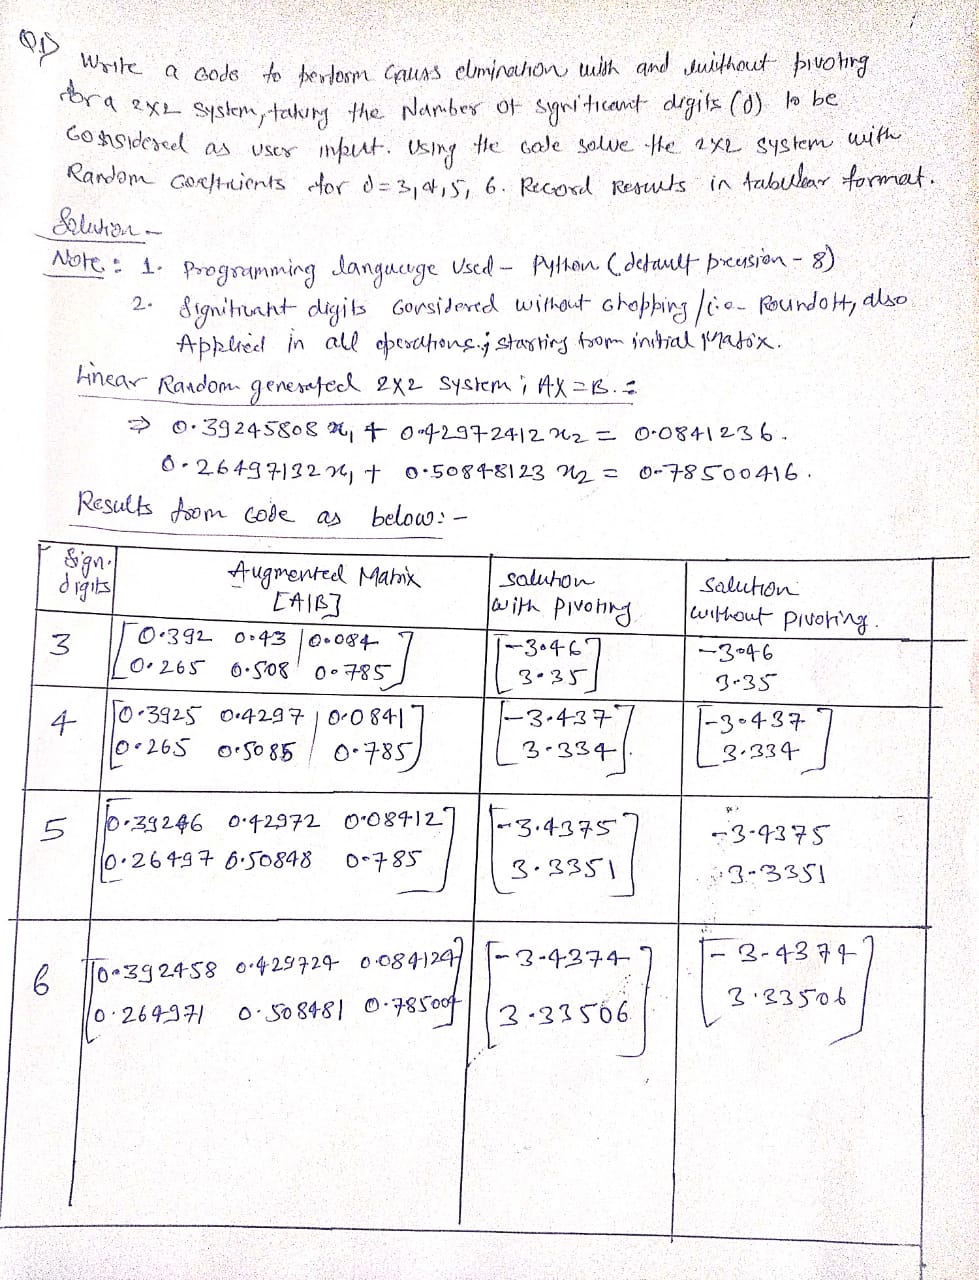 Q.1) Write a code to perform Gauss elmination with and without pivoting
for a 2x2 System, taking the Number of significant digits (d) to be
Considered as user input. Using the code solve the 2x2 system with
Random Coefficients for d=3,4,5,6. Record Results in tabular format.
Solution -
Note : 1. Programming language Used - Python (default precision - 8)
2. Significant digits Considered without chopping/i.e- Roundoff, also
Applied in all operations; starting from initial Matrix.
Linear Random generated 2x2 system ; AX=B. :-
⇒ 0.39245808 x₁ + 0.42972412 x₂ = 0.0841236.
0.26497132 x₁ + 0.50848123 x₂ = 0.78500416.
Results from code as below:-
Sign. digits
Augmented Matrix [A|B]
solution with Pivoting
Solution without pivoting.
3
0.392 0.43 | 0.084
0.265 0.508 0.785
-3.46
3.35
-3.46
3.35
4
0.3925 0.4297 | 0.0841
0.265 0.5085 | 0.785
-3.437
3.334
-3.437
3.334
5
0.39246 0.42972 0.08412
0.26497 0.50848 0.785
-3.4375
3.3351
-3.4375
3.3351
6
0.392458 0.429724 0.084124
0.264971 0.508481 0.785004
-3.4374
3.33506
-3.4374
3.33506